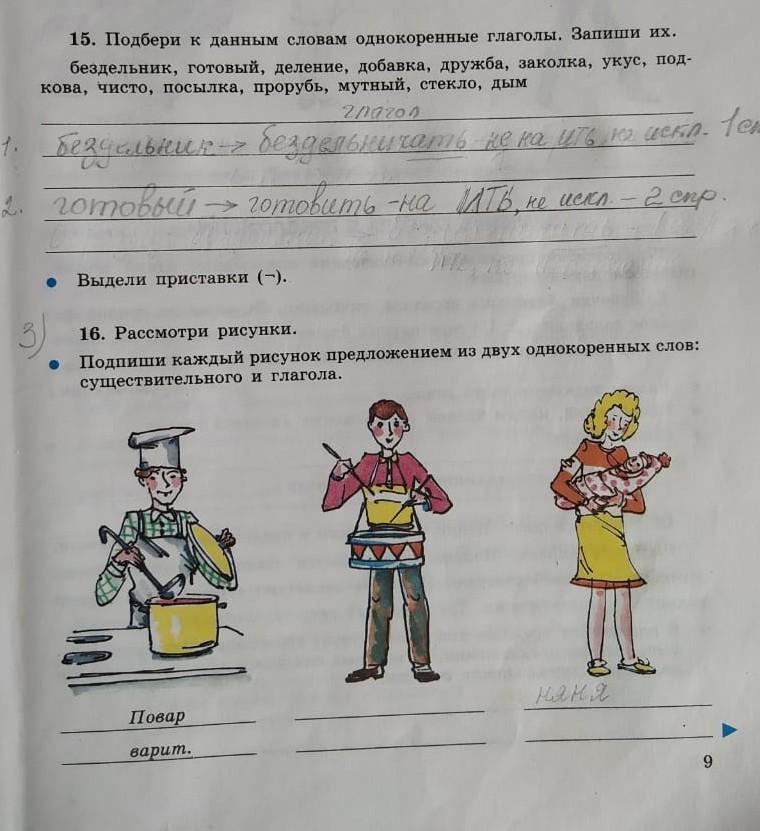 15. Подбери к данным словам однокоренные глаголы. Запиши их.
бездельник, готовый, деление, добавка, дружба, заколка, укус, под-
кова, чисто, посылка, прорубь, мутный, стекло, дым
глагол
1. бездельник → бездельничать - не на ить, не искл. 1 сп
2. готовый → готовить - на ИТЬ, не искл. - 2 спр.
• Выдели приставки (¬).
3) 16. Рассмотри рисунки.
• Подпиши каждый рисунок предложением из двух однокоренных слов:
существительного и глагола.
няня
Повар
варит.
9